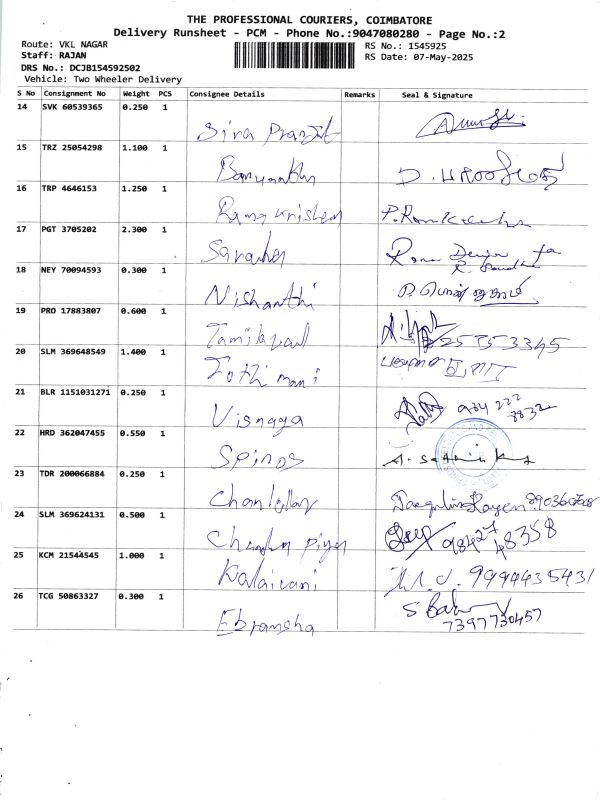 THE PROFESSIONAL COURIERS, COIMBATORE
Delivery Runsheet - PCM - Phone No.:9047080280 - Page No.:2
Route: VKL NAGAR RS No.: 1545925
Staff: RAJAN RS Date: 07-May-2025
DRS No.: DCJB154592502
Vehicle: Two Wheeler Delivery
S No Consignment No Weight PCS Consignee Details Remarks Seal & Signature
14 SVK 60539365 0.250 1
Siva
15 TRZ 25054298 1.100 1
16 TRP 4646153 1.250 1
Ramakrishnan
17 PGT 3705202 2.300 1
18 NEY 70094593 0.300 1
Nishanthi
19 PRO 17883807 0.600 1
20 SLM 369648549 1.400 1
Jothi mani
21 BLR 1151031271 0.250 1
Visnaga 984 222 8832
22 HRD 362047455 0.550 1
Spinos
23 TDR 200066884 0.250 1
24 SLM 369624131 0.500 1
98427 48358
25 KCM 21544545 1.000 1
Kalaivani 9994435431
26 TCG 50863327 0.300 1
Ebramsha 7397730457